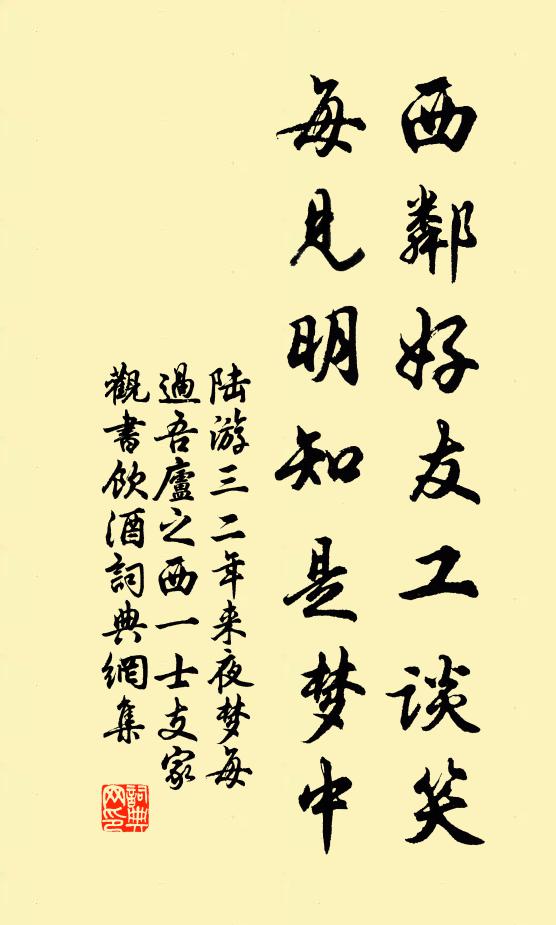 西鄰好友工谈笑
每见明知是梦中
陆游三二年来夜梦每
過吾廬之西一士支家
觀書飲酒詞典網集
詞典网印